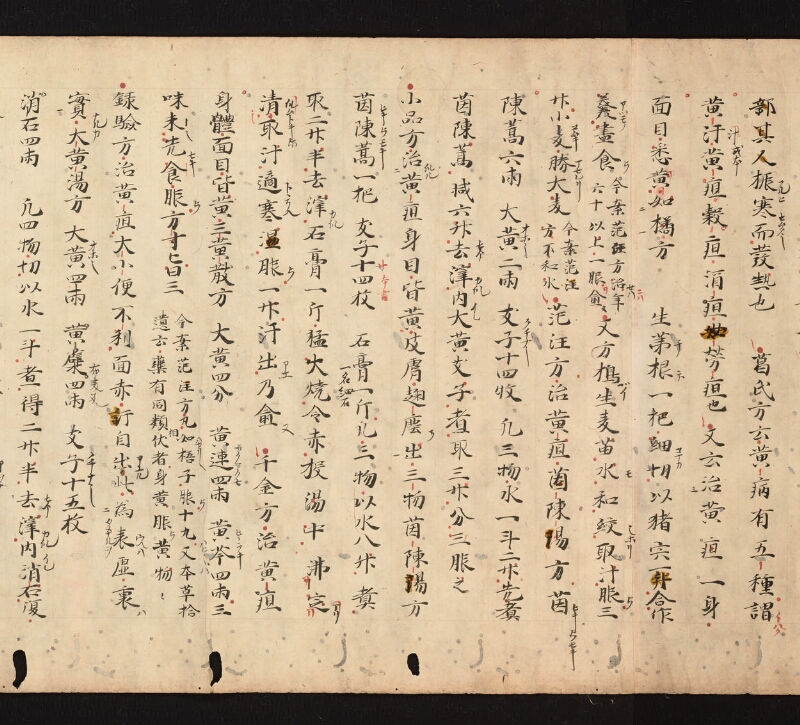 部其人振寒而發熱也　葛氏方云黃病有五種謂
黃汗黃疸穀疸酒疸女勞疸也　又云治黃疸一身
面目悉黃如橘方　生茅根一把細切以猪宍一斤合作
羹盡食　又方搗生麦苗水和絞取汁服三
令案范汪方治年
六十以上一服愈
升小麦勝大麦　范汪方治黃疸茵陳湯方　茵
令案范汪
方不和水
陳蒿六兩　大黃二兩　支子十四枚　凡三物水一斗二升先煮
茵陳蒿減六升去滓內大黃支子煮取三升分三服之
小品方治黃疸身目皆黃皮膚麴塵出三物茵陳湯方
茵陳蒿一把　支子十四枚　石膏一斤凡三物以水八升煮
取二升半去滓石膏一斤猛火燒令赤投湯中沸定
清取汁適寒温服一升汗出乃愈　千金方治黃疸
身體面目皆黃三黃散方　大黃四分　黃連四兩　黃芩四兩三
味末先食服方寸匕日三
令案范汪方丸如梧子服十丸又本草拾
遺云藥有同類相伏者身黃服黃物
録驗方治黃疸大小便不利面赤汗自出此為表虛裏
實大黃湯方　大黃四兩　黃蘗四兩　支子十五枚
消石四兩　凡四物切以水一斗煮得二升半去滓內消石復